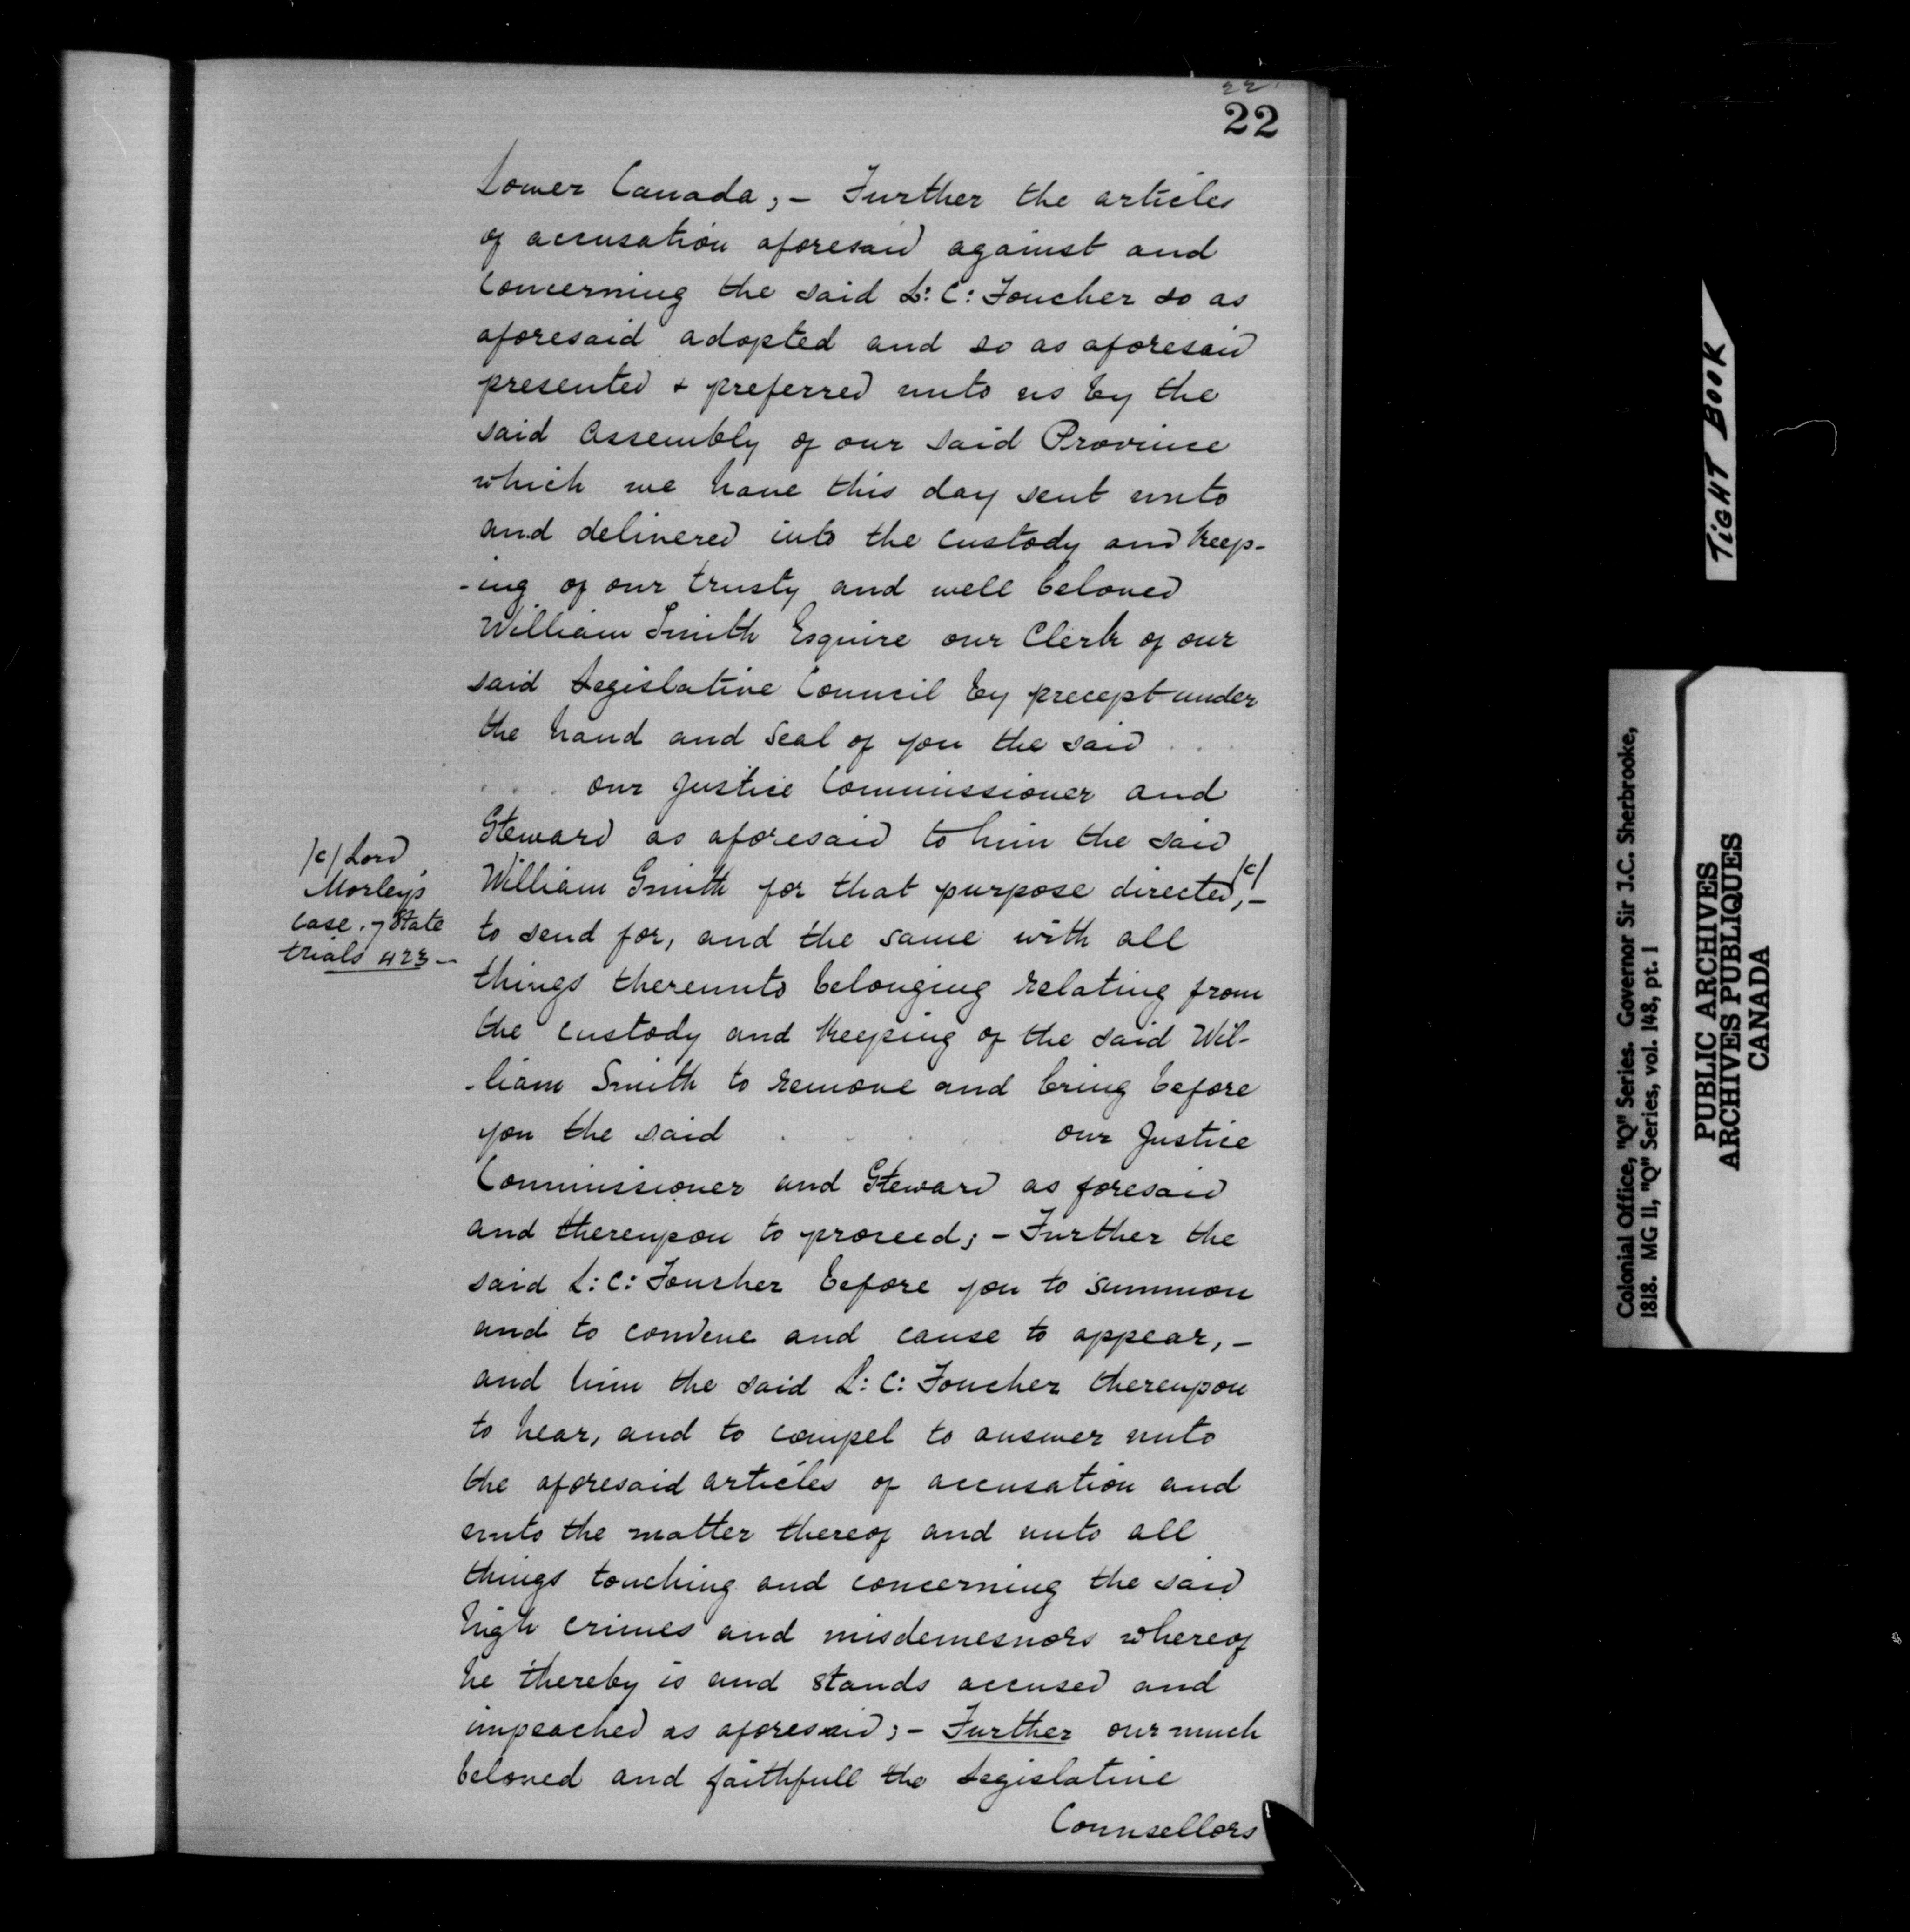 22
22
Lower Canada; - Further the articles
of accusation aforesaid against and
concerning the said L: C: Foucher so as
aforesaid adopted and so as aforesaid
presented + preferred unto us by the
said Assembly of our said Province
which we have this day sent unto
and delivered into the custody and keep-
-ing of our trusty and well beloved
William Smith Esquire our Clerk of our
said Legislative Council by precept under
the hand and seal of you the said . .
. . . our Justice Commissioner and
Steward as aforesaid to him the said
William Smith for that purpose directed, /c/ -
/c/ Lord
Morley's
case. 7 State
trials 423 -
to send for, and the same with all
things thereunto belonging relating from
the custody and keeping of the said Wil-
-liam Smith to remove and bring before
you the said . . . . our Justice
Commissioner and Steward as foresaid
and thereupon to proceed; - Further the
said L: C: Foucher before you to summon
and to convene and cause to appear, -
and him the said L: C: Foucher thereupon
to hear, and to compel to answer unto
the aforesaid articles of accusation and
unto the matter thereof and unto all
things touching and concerning the said
high crimes and misdemesnors whereof
he thereby is and stands accused and
impeached as aforesaid; - Further our much
beloved and faithfull the Legislative
Counsellors
TIGHT BOOK
Colonial Office, "Q" Series. Governor Sir J.C. Sherbrooke,
1818. MG 11, "Q" Series, vol. 148, pt. 1
PUBLIC ARCHIVES
ARCHIVES PUBLIQUES
CANADA